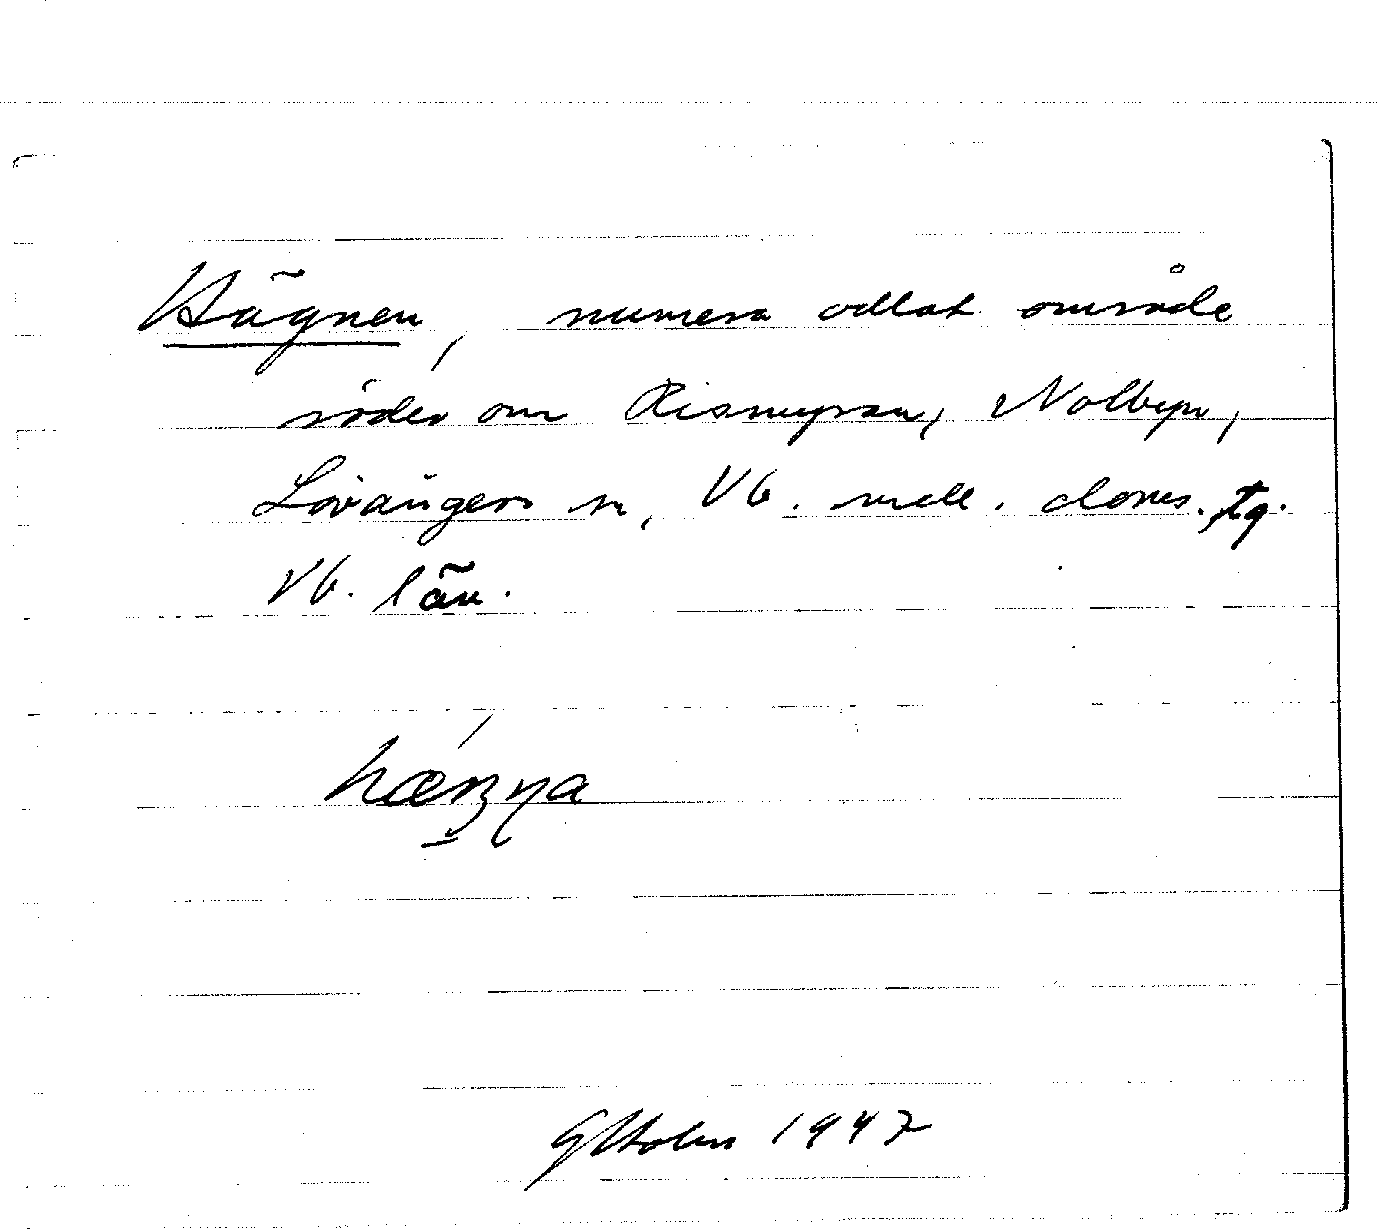 Hägnen, numera odlat område
söder om Rismyran, Nolbyn,
Lövångers sn, Vb. mell. doms. tg.
Vb. län.
G Holm 1947